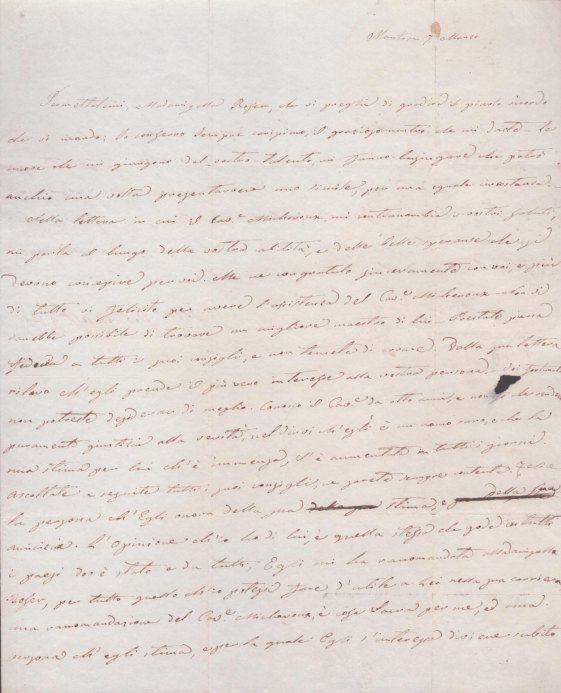 Mantova 7 Marzo
Permettetemi, Madamigella Roser, che vi preghi di gradire il piccolo ricordo
che vi mando; Io conservo sempre il grazioso vostro che mi daste - le
nuove che mi giungono del vostro talento, mi fanno lusingare che potrò
anch'io una volta presentarvene uno simile, per una eguale
Nella lettera in cui il Cav.e Micheroux, mi i vostri saluti,
mi parla a lungo della vostra abilità, e delle belle speranze che si
devono concepire per voi. Me ne congratulo sinceramente con voi, e più
di tutto vi felicito per avere l'assistenza del Cav.e Micheroux - non vi
sarebbe possibile di trovare un migliore maestro di lui. Prestate piena
fede a tutti i suoi consigli, e non temete di errare. Dalla sua lettera
rilevo ch'egli prende il più vero interesse alla vostra persona. Voi
non potreste desiderare di meglio. Conosco il Cav.e da otto anni, e non
puramente giustizia alla verità, nel dirvi ch'egli è un uomo raro, e che la
mia stima per lui ch'è immensa, s'è aumentata in tutti i giorni.
Ascoltate e seguite tutti i suoi consigli, e sarete sempre contenta. Felice
la persona ch'Egli onora della sua stima, e della sua
amicizia. L'opinione ch'io ho di lui, è quella stessa che gode in tutti
i paesi dov'è stato e da tutti. Egli mi ha raccomandata Madamigella
Roser, per tutto quello ch'io potessi fare d'utile a Lei nella sua carriera
una raccomandazione del Cav.e Micheroux, è cosa sacra per me, ed una
persona ch'egli stima, e per la quale Egli s'interessa diviene subito